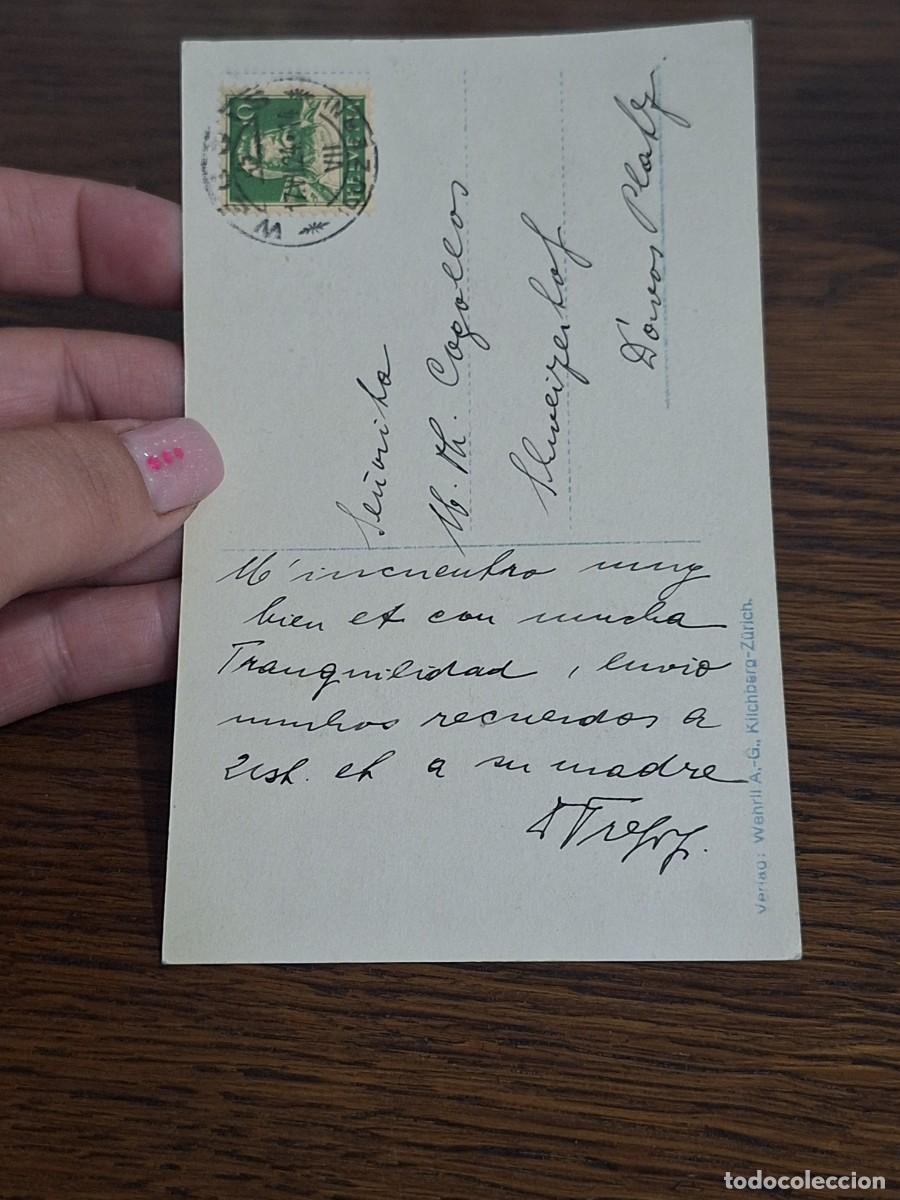 HELVETIA
10
Señorita
M. Th. Cogollos
Shweizerhof
Davos Platz.
M'incuentro muy
bien et con mucha
Tranquilidad, envio
muchos recuerdos a
Ust. et a su madre
Verlag: Wehrli A.-G., Kilchberg-Zürich.
todocoleccion